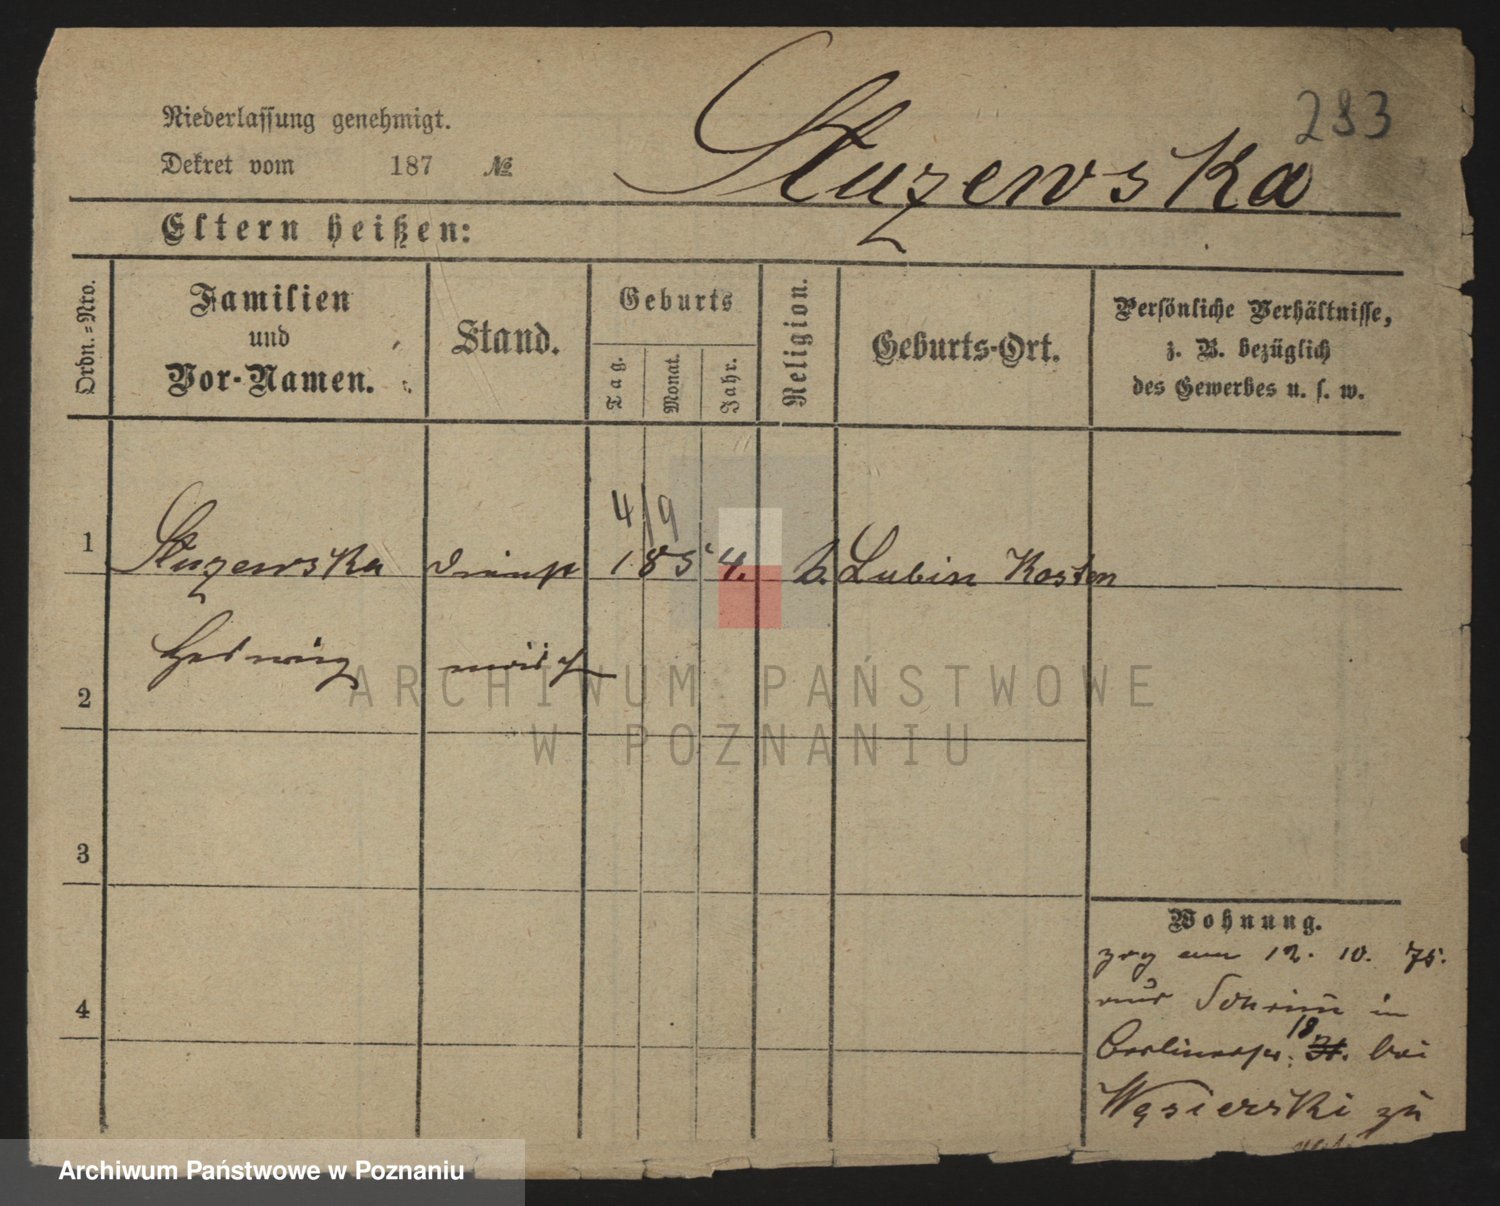 283
Niederlassung genehmigt.
Dekret vom 187 №
Stuzewska
Eltern heißen:
Ordn.-Nro.
Familien
und
Vor-Namen.
Stand.
Geburts
Tag.
Monat.
Jahr.
Religion.
Geburts-Ort.
Persönliche Verhältnisse,
z. B. bezüglich
des Gewerbes u. s. w.
4/9
1 Stuzewska Dienst 1854. k. Lubin Kosten
Hedwig mädch
2
3
4
Wohnung.
zog am 12. 10. 75.
aus Schrimm in
18
Berlinerstr. bei
Węsierski zu
ARCHIWUM PAŃSTWOWE
W POZNANIU
Archiwum Państwowe w Poznaniu